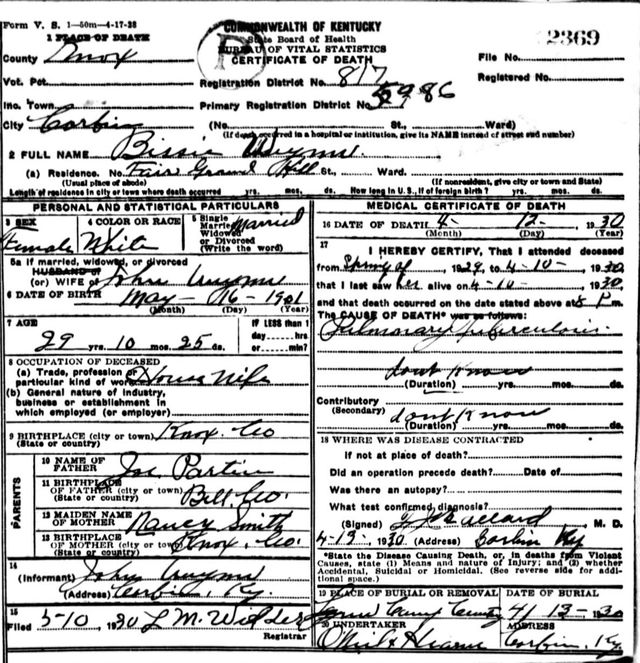 Form V. S. 1—50m—4-17-28
COMMONWEALTH OF KENTUCKY
State Board of Health
BUREAU OF VITAL STATISTICS
CERTIFICATE OF DEATH
2369
1 PLACE OF DEATH
County Knox
File No.
Vot. Pct.
Registration District No. 817
Registered No.
Inc. Town
Primary Registration District No. 5986
City Corbin (No. St., Ward)
(If death occurred in a hospital or institution, give its NAME instead of street and number)
2 FULL NAME
(a) Residence. No. Fair Ground Hill St., Ward.
(Usual place of abode) (If nonresident, give city or town and State)
Length of residence in city or town where death occurred yrs. mos. ds. How long in U. S., if of foreign birth? yrs. mos. ds.
PERSONAL AND STATISTICAL PARTICULARS
3 SEX Female
4 COLOR OR RACE White
5 Single Married Widowed or Divorced (Write the word) Married
5a If married, widowed, or divorced
HUSBAND of
(or) WIFE of John
6 DATE OF BIRTH May—16—1901
(Month) (Day) (Year)
7 AGE
29 yrs. 10 mos. 25 ds.
IF LESS than 1 day hrs. or min.?
8 OCCUPATION OF DECEASED
(a) Trade, profession or particular kind of work House Wife
(b) General nature of industry, business or establishment in which employed (or employer)
9 BIRTHPLACE (city or town) Knox. Co
(State or country)
PARENTS
10 NAME OF FATHER Joe Partin
11 BIRTHPLACE OF FATHER (city or town) Bell. Co.
(State or country)
12 MAIDEN NAME OF MOTHER Nancy Smith
13 BIRTHPLACE OF MOTHER (city or town) Knox. Co.
(State or country)
14
(Informant) John
(Address) Corbin, Ky.
15
Filed 5-10 1930 L M. Wilder
Registrar
MEDICAL CERTIFICATE OF DEATH
16 DATE OF DEATH 4- 12- 1930
(Month) (Day) (Year)
17
I HEREBY CERTIFY, That I attended deceased
from Spring of 1929 to 4-10- 1930
that I last saw her alive on 4-10- 1930
and that death occurred on the date stated above at 8 P m.
The CAUSE OF DEATH* was as follows:
Pulmonary tuberculosis
dont Know
(Duration) yrs. mos. ds.
Contributory
(Secondary) dont Know
(Duration) yrs. mos. ds.
18 WHERE WAS DISEASE CONTRACTED
If not at place of death?
Did an operation precede death? Date of
Was there an autopsy?
What test confirmed diagnosis?
(Signed) Ballard M. D.
1930 (Address) Corbin Ky
*State the Disease Causing Death, or, in deaths from Violent Causes, state (1) Means and nature of Injury; and (2) whether Accidental, Suicidal or Homicidal. (See reverse side for additional space.)
19 PLACE OF BURIAL OR REMOVAL
DATE OF BURIAL
4/ 13- 1930
20 UNDERTAKER
O'Neil & Hearn
ADDRESS
Corbin, Ky.